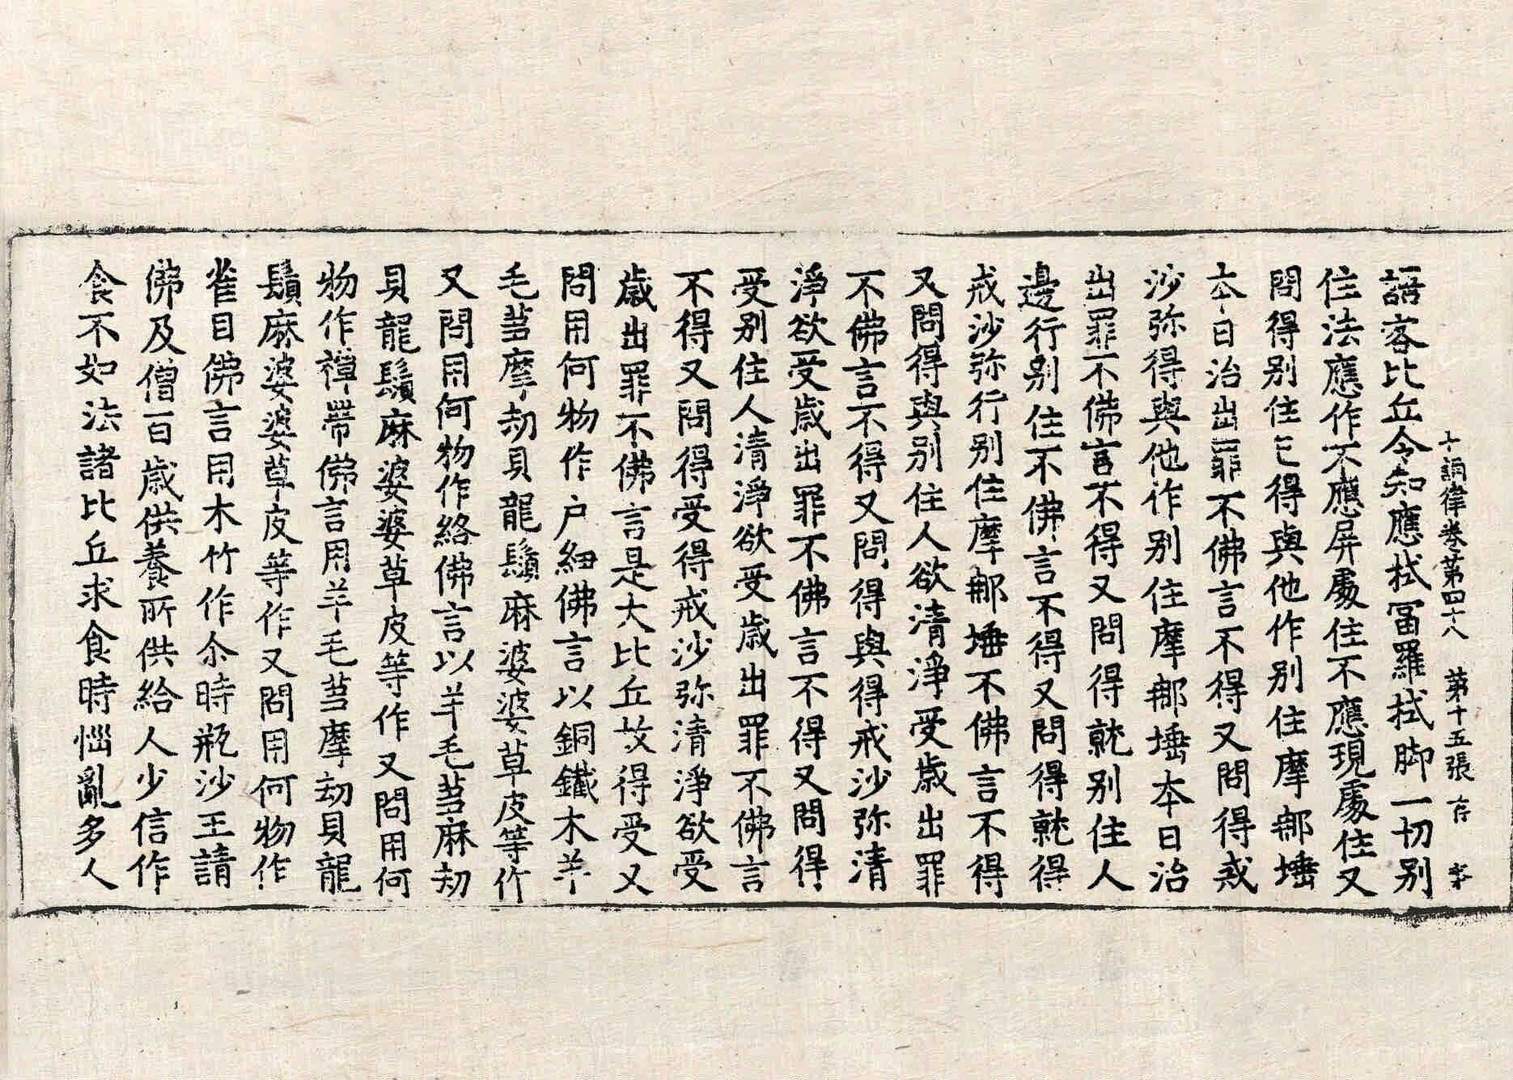 十誦律卷第四十八　第十五張　存
語客比丘令知應拭冨羅拭脚一切別
住法應作不應屏處住不應現處住又
問得別住已得與他作別住摩那埵
本日治出罪不佛言不得又問得戒
沙弥得與他作別住摩那埵本日治
出罪不佛言不得又問得就別住人
邊行別住不佛言不得又問得就得
戒沙弥行別住摩那埵不佛言不得
又問得與別住人欲清淨受歲出罪
不佛言不得又問得與得戒沙弥清
淨欲受歲出罪不佛言不得又問得
受別住人清淨欲受歲出罪不佛言
不得又問得受得戒沙弥清淨欲受
歲出罪不佛言是大比丘故得受又
問用何物作户紐佛言以銅鐵木羊
毛芻摩劫貝龍鬚麻婆婆草皮等作
又問用何物作絡佛言以羊毛芻麻劫
貝龍鬚麻婆婆草皮等作又問用何
物作禪帶佛言用羊毛芻摩劫貝龍
鬚麻婆婆草皮等作又問用何物作
雀目佛言用木竹作尒時瓶沙王請
佛及僧百歲供養所供給人少信作
食不如法諸比丘求食時惱亂多人